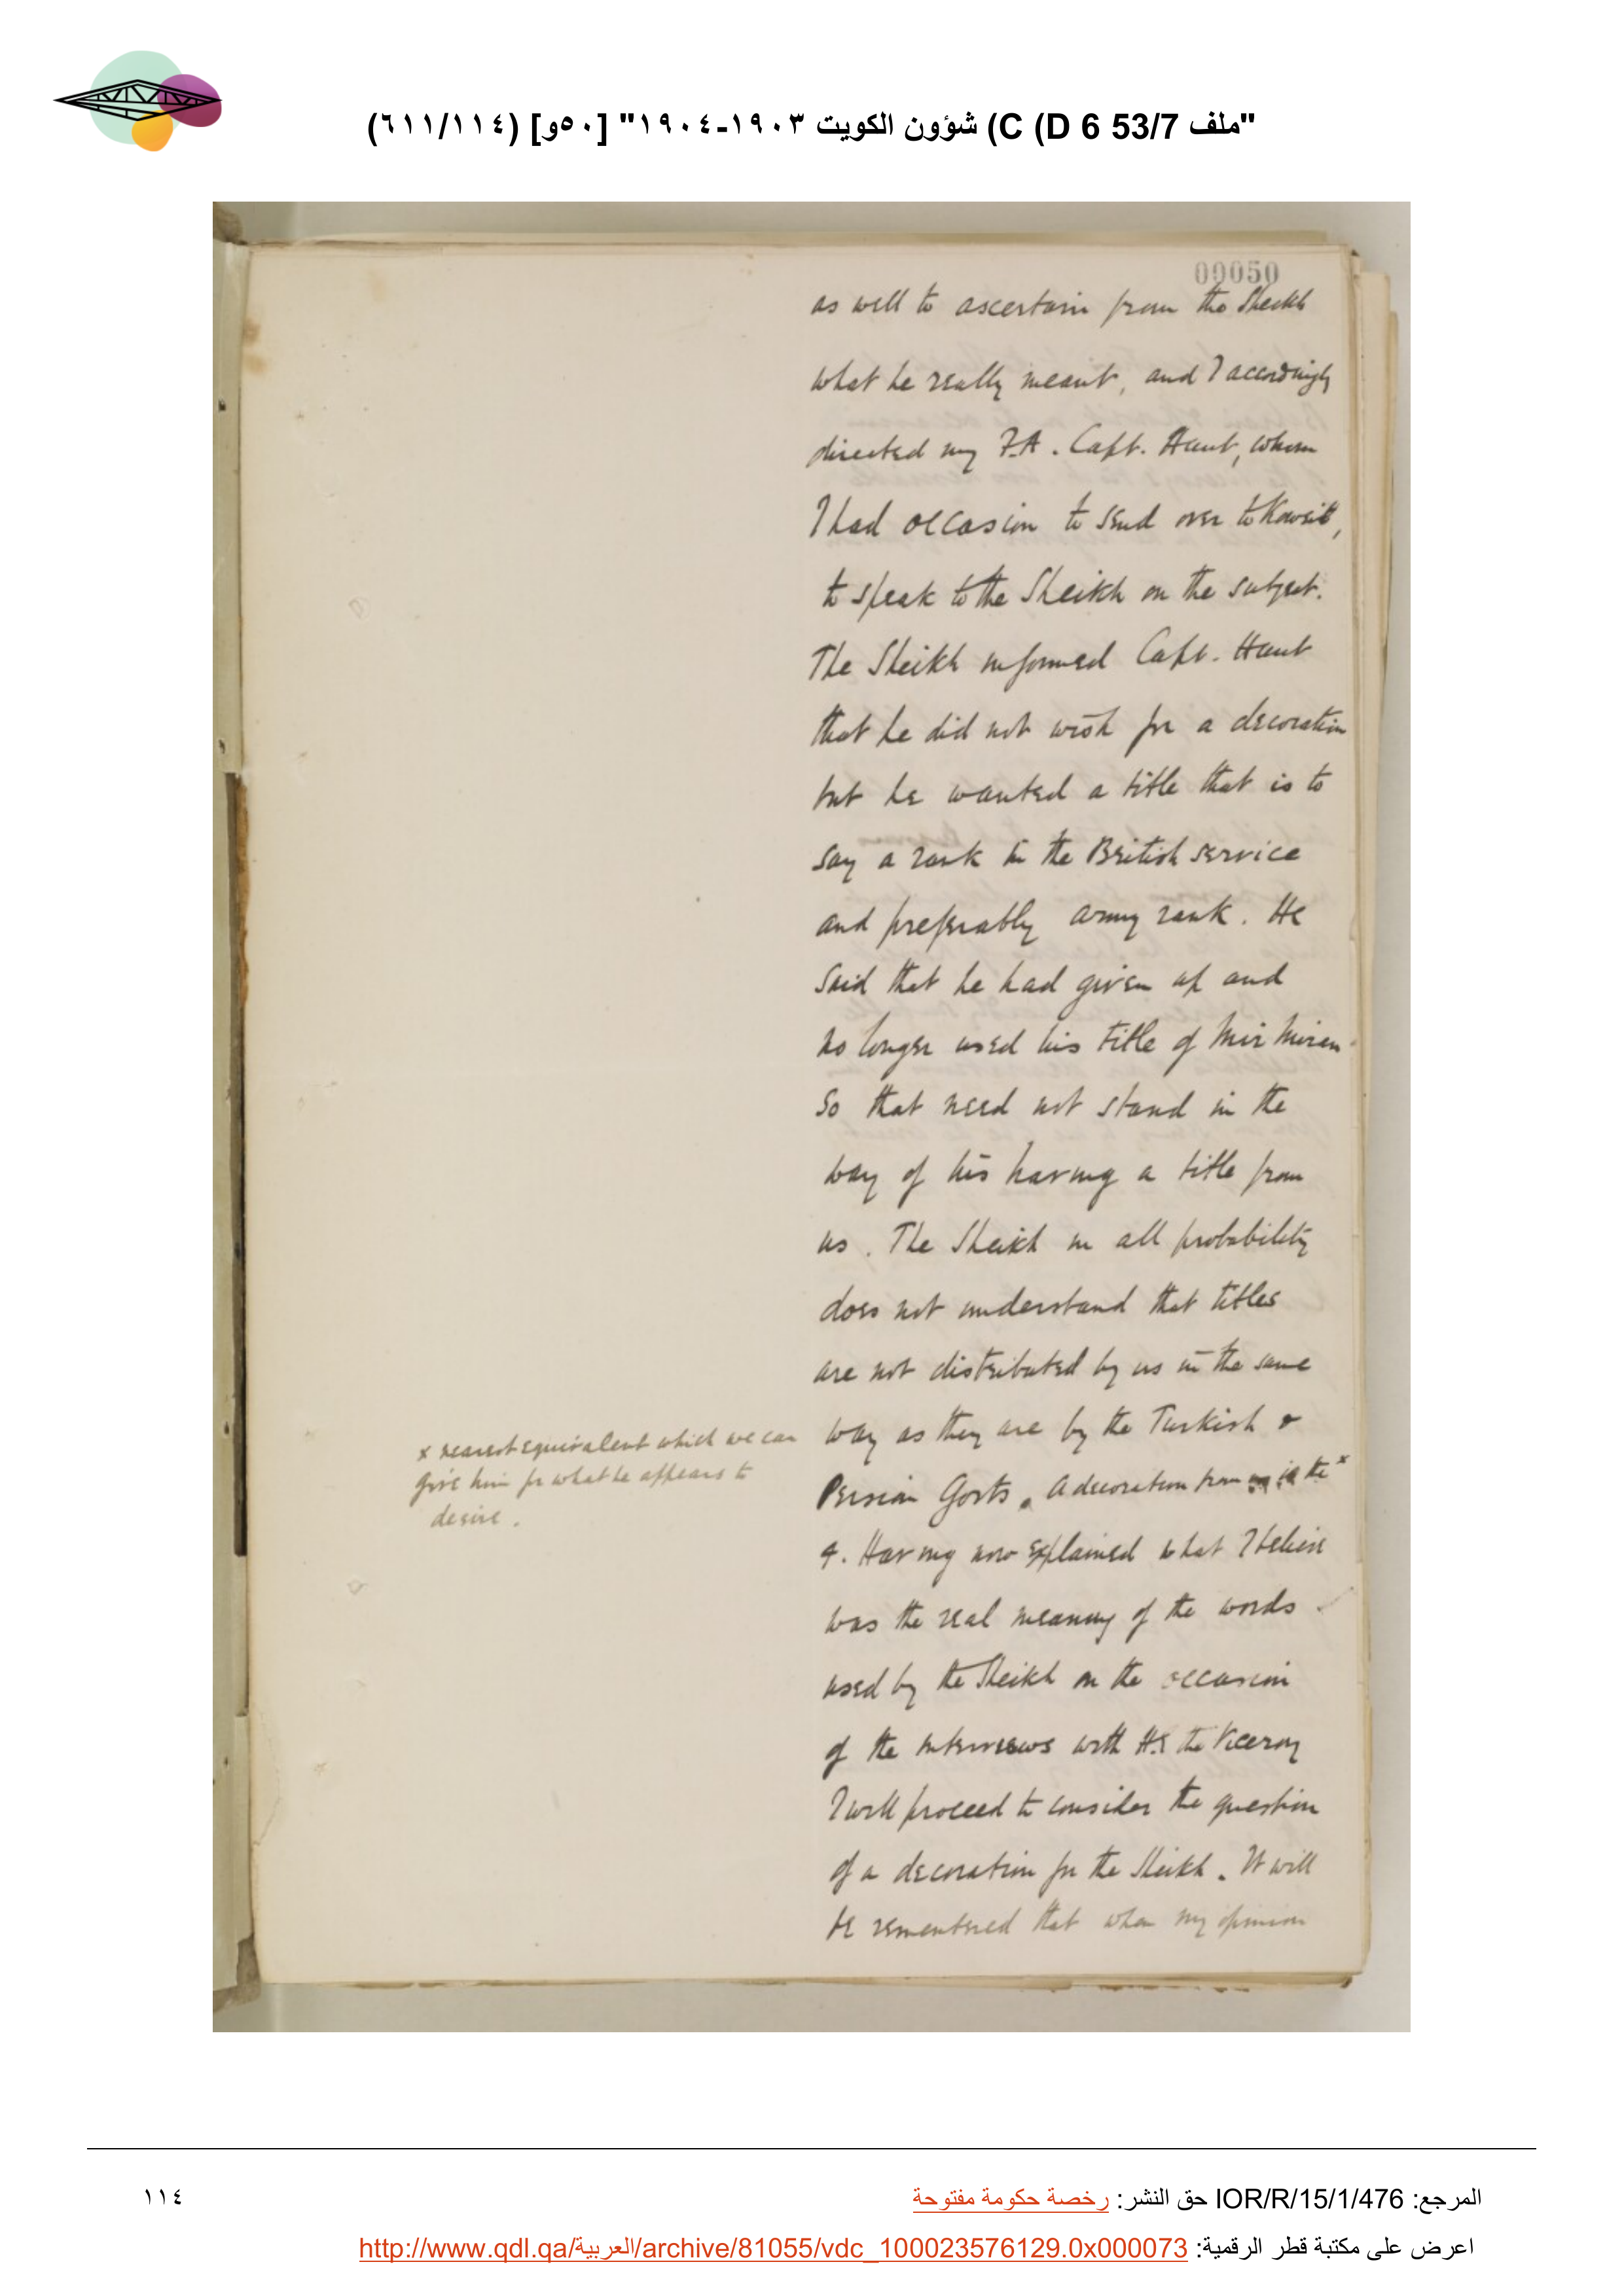 "ملف 53/7 D 6) C) شؤون الكويت ١٩٠٣-١٩٠٤" [٥٠و] (٦١١/١١٤)
00050
as well to ascertain from the Sheikh
what he really meant, and I accordingly
directed my F.A. Capt. Hunt, whom
I had occasion to send over to Koweit,
to speak to the Sheikh on the subject.
The Sheikh informed Capt. Hunt
that he did not wish for a decoration
but he wanted a title that is to
say a rank in the British service
and preferably army rank. He
said that he had given up and
no longer used his title of Mir Miran
so that need not stand in the
way of his having a title from
us. The Sheikh in all probability
does not understand that titles
are not distributed by us in the same
way as they are by the Turkish &
Persian Govts. A decoration from is the x
x nearest equivalent which we can
give him for what he appears to
desire.
4. Having now explained what I believe
was the real meaning of the words
used by the Sheikh on the occasion
of the interviews with H.E the Viceroy
I will proceed to consider the question
of a decoration for the Sheikh. It will
be remembered that when my opinion
المرجع: IOR/R/15/1/476 حق النشر: رخصة حكومة مفتوحة
١١٤
اعرض على مكتبة قطر الرقمية: http://www.qdl.qa/العربية/archive/81055/vdc_100023576129.0x000073